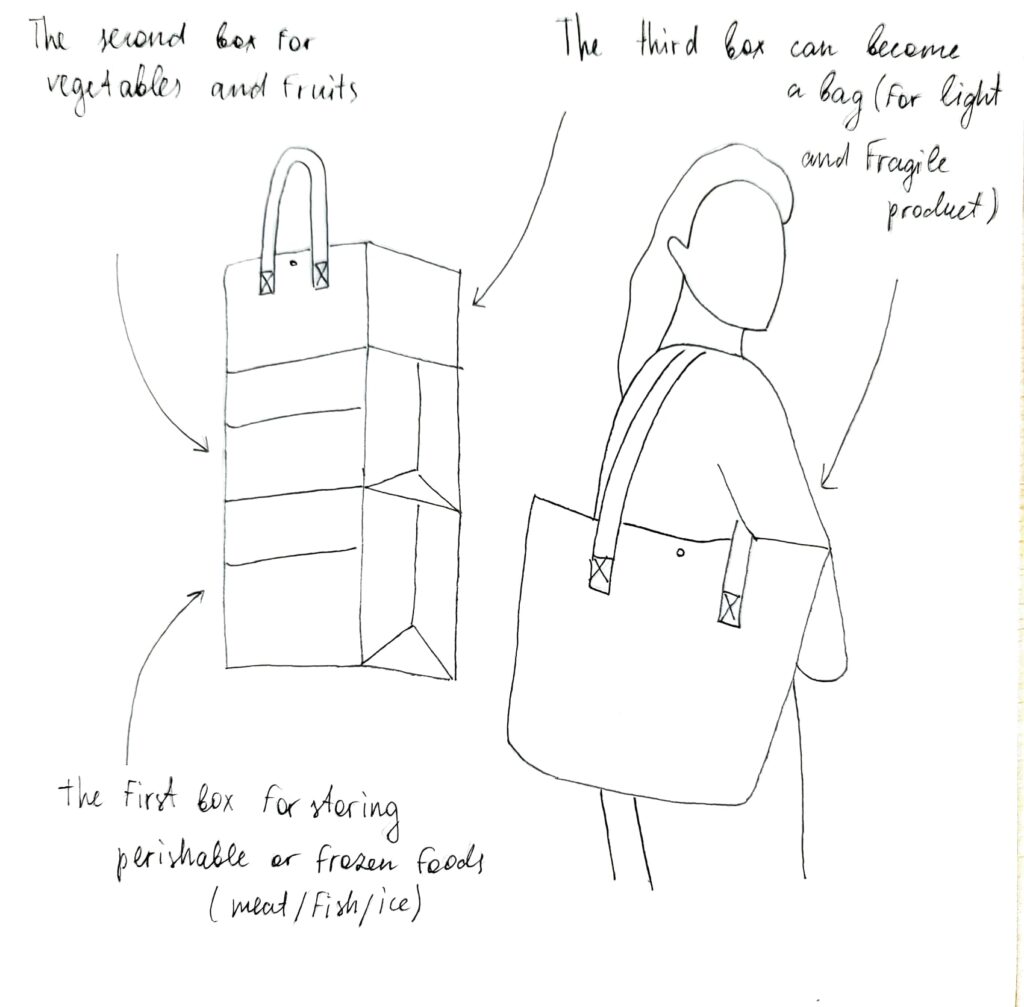 The second box for
vegetables and fruits
The third box can become
a bag (for light
and fragile
product)
the first box for storing
perishable or frozen foods
(meat/fish/ice)